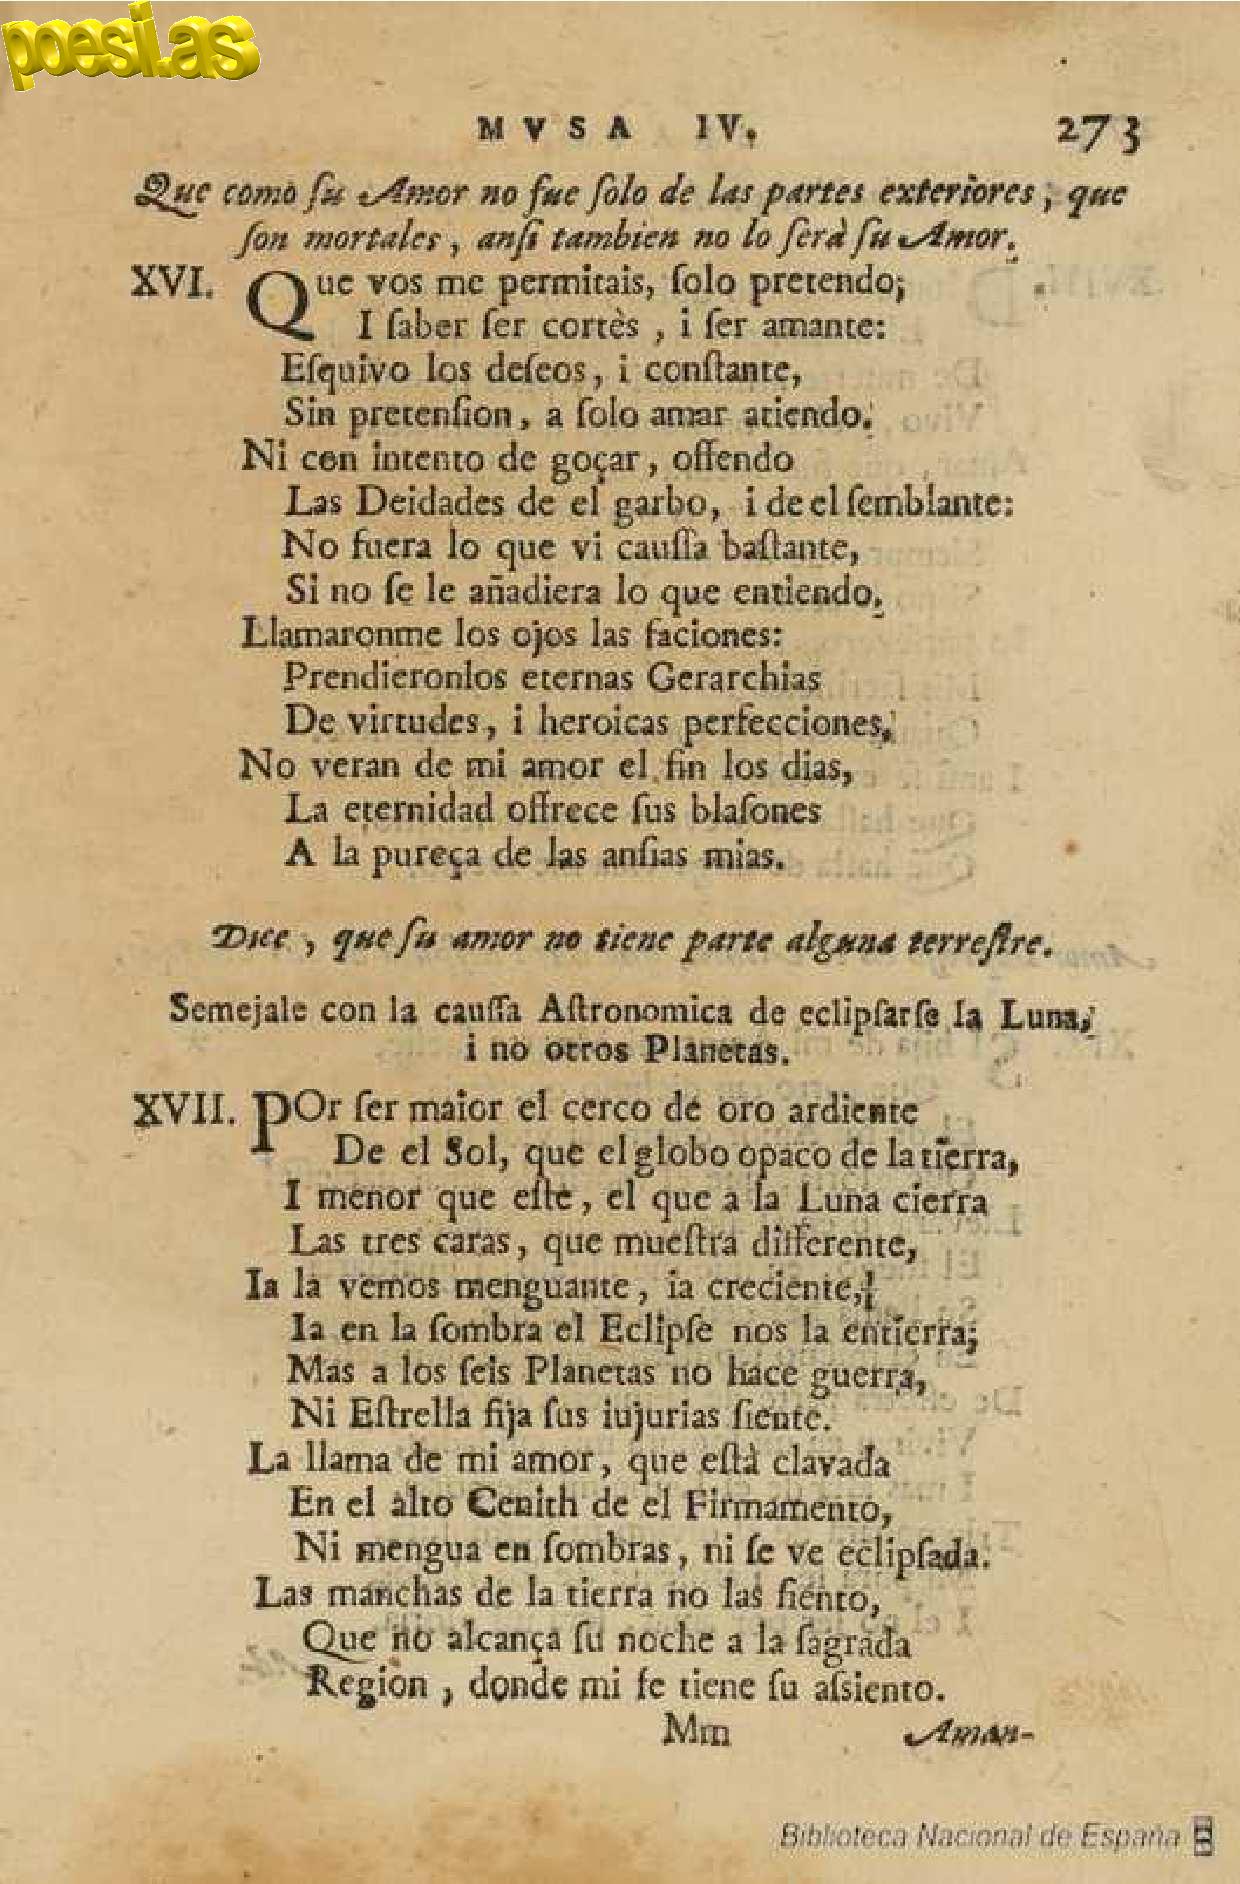 poesi.as
MVSA IV. 273
Que como ſu Amor no fue ſolo de las partes exteriores, que
ſon mortales, anſi tambien no lo ſerà ſu Amor.
XVI. Que vos me permitais, ſolo pretendo;
I ſaber ſer cortès, i ser amante:
Eſquivo los deſeos, i conſtante,
Sin pretenſion, a ſolo amar atiendo.
Ni con intento de goçar, offendo
Las Deidades de el garbo, i de el ſemblante:
No fuera lo que vi cauſſa baſtante,
Si no ſe le añadiera lo que entiendo.
Llamaronme los ojos las faciones:
Prendieronlos eternas Gerarchias
De virtudes, i heroicas perfecciones,
No veran de mi amor el fin los dias,
La eternidad offrece ſus blaſones
A la pureça de las anſias mias.
Dice, que ſu amor no tiene parte alguna terreſtre.
Semejale con la cauſſa Aſtronomica de eclipſarſe la Luna,
i no otros Planetas.
XVII. POr ſer maior el cerco de oro ardiente
De el Sol, que el globo opaco de la tierra,
I menor que eſte, el que a la Luna cierra
Las tres caras, que mueſtra differente,
Ia la vemos menguante, ia creciente,
Ia en la ſombra el Eclipſe nos la entierra;
Mas a los ſeis Planetas no hace guerra,
Ni Eſtrella fija ſus iujurias ſiente.
La llama de mi amor, que eſtà clavada
En el alto Cenith de el Firmamento,
Ni mengua en ſombras, ni ſe ve eclipſada.
Las manchas de la tierra no las ſiento,
Que no alcança ſu noche a la ſagrada
Region, donde mi fe tiene ſu aſsiento.
Mm Aman-
Biblioteca Nacional de España